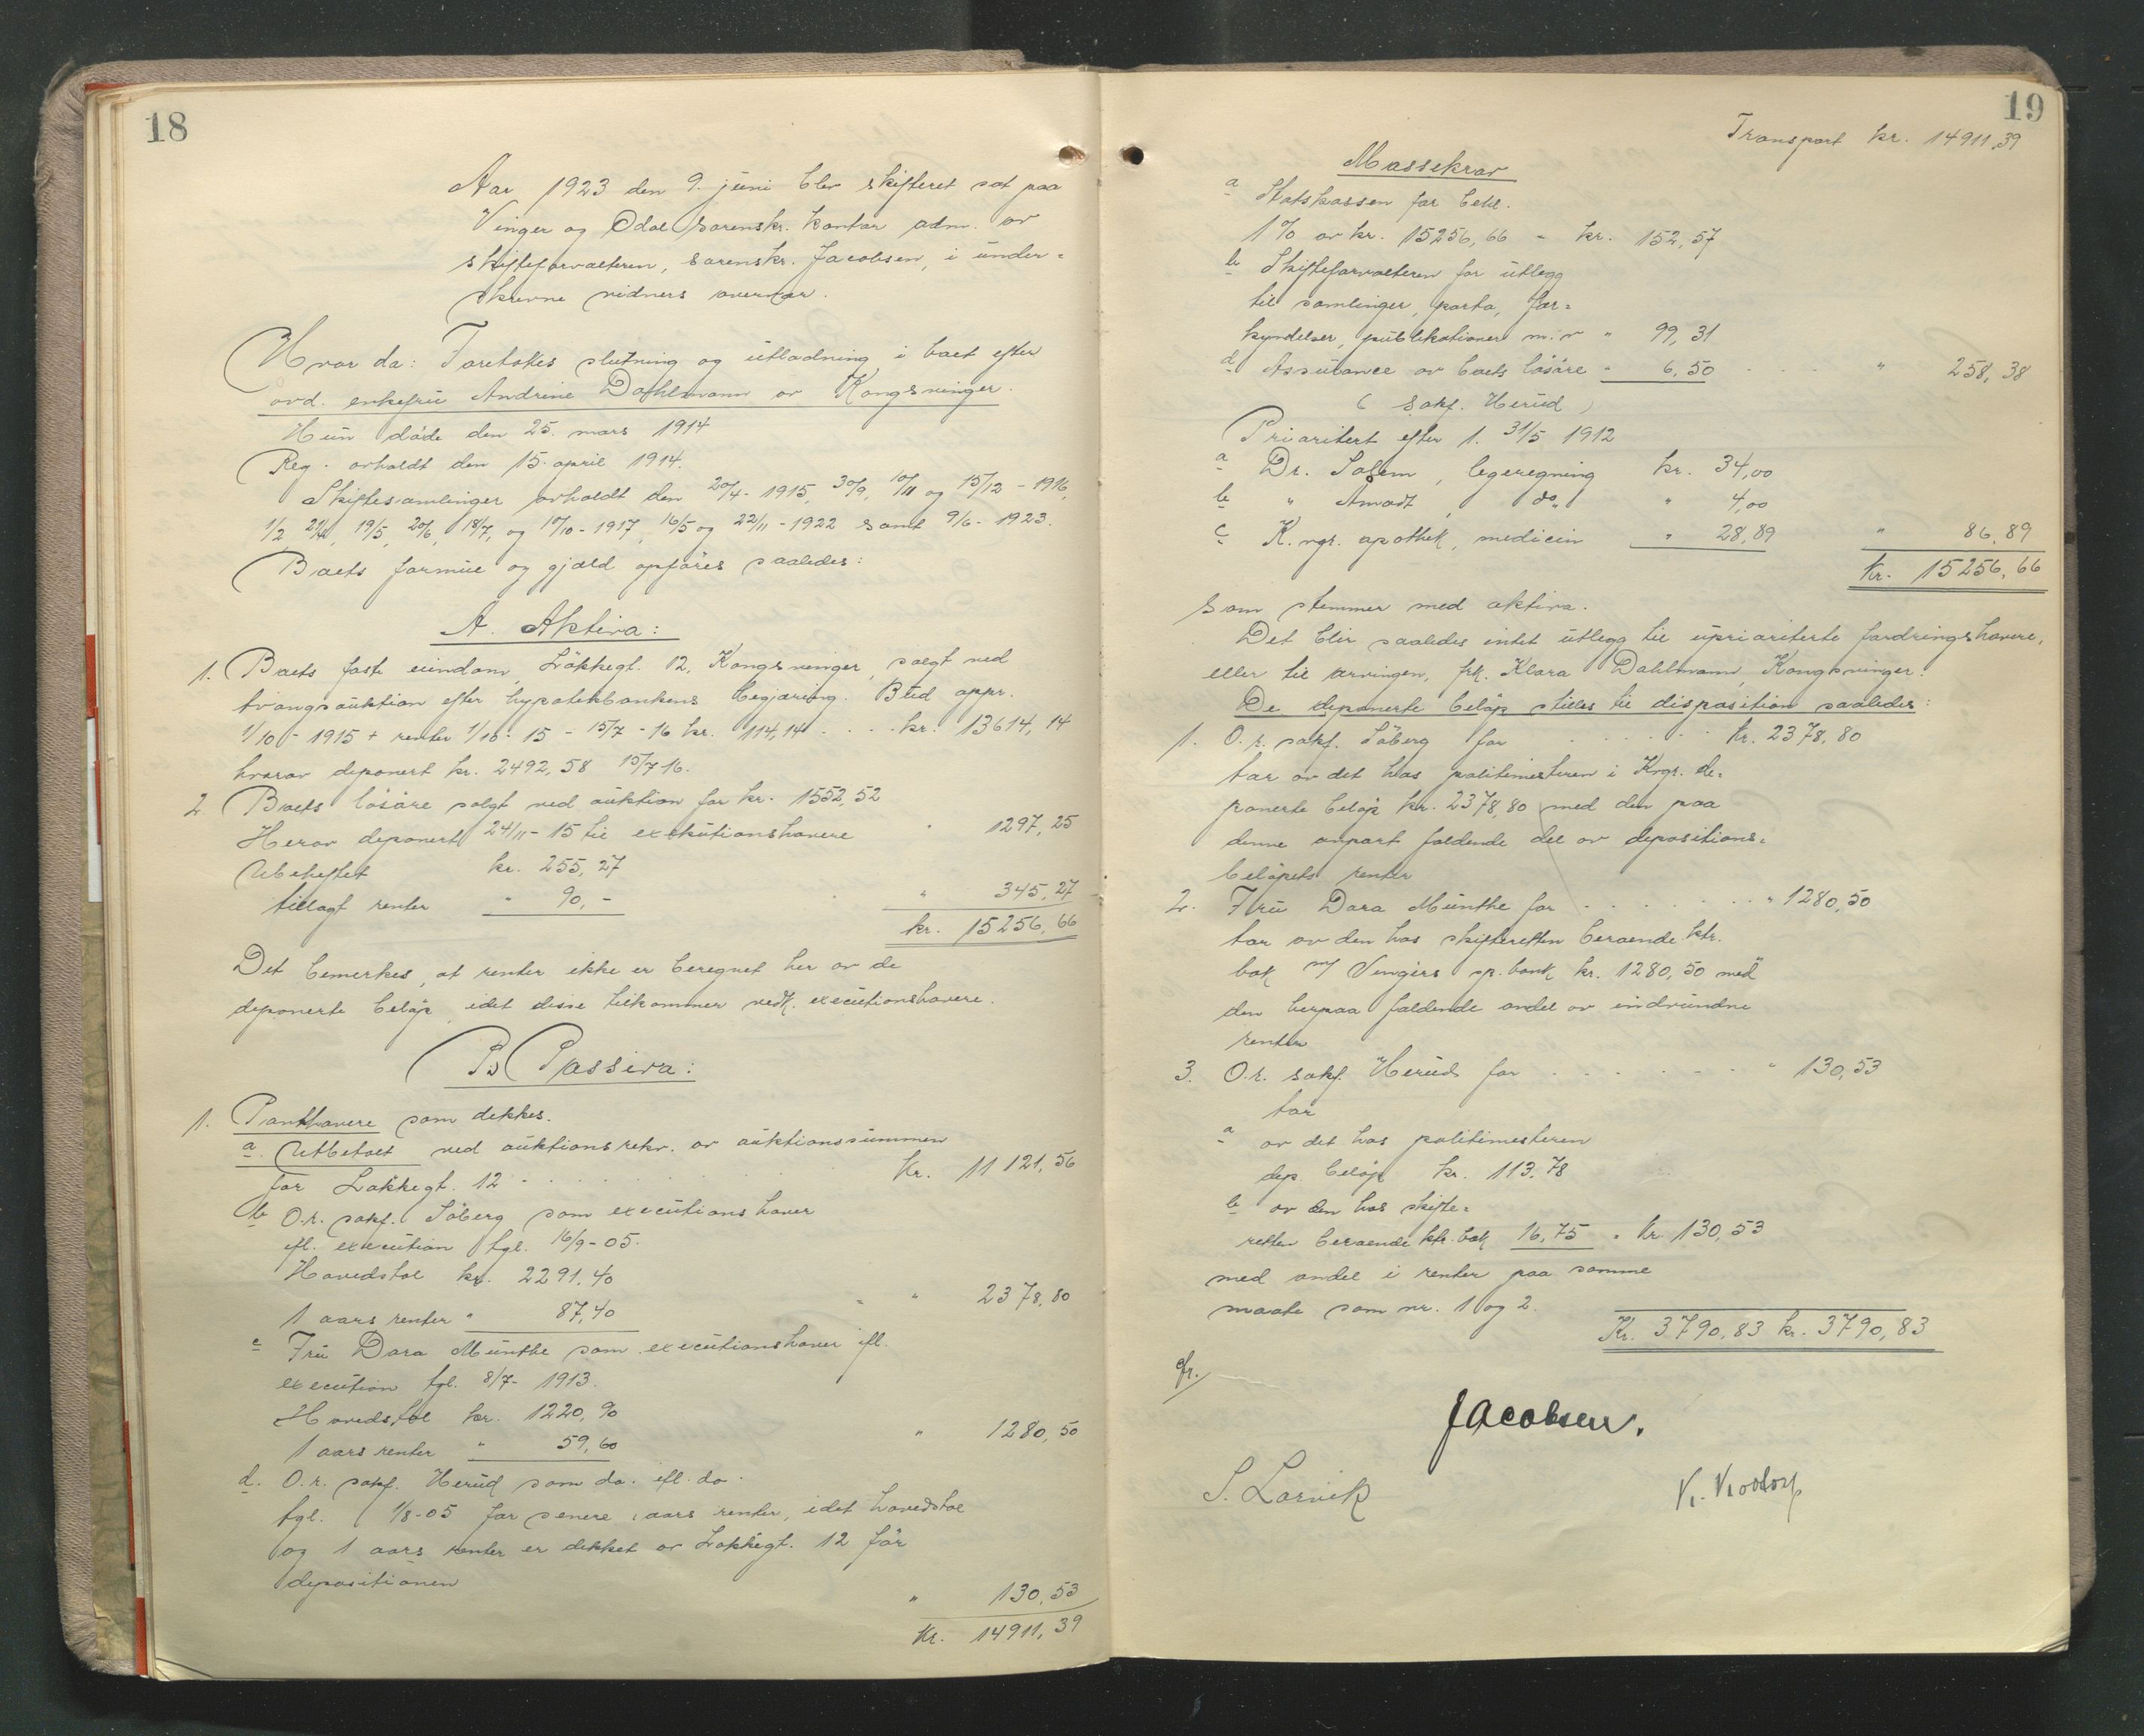 18
Aar 1923 den 9. juni blev skifteret sat paa
Vinger og Odal sorenskr. kontor adm. av
skifteforvalteren, sorenskr. Jacobsen, i under=
skrevne vidners overvær.
Hvor da: Foretokes slutning og utlodning i boet efter
avd. enkefru Andrine Dahlmann av Kongsvinger.
Hun døde den 25. mars 1914
Reg. avholdt den 15. april 1914.
Skiftesamlinger avholdt den 20/4 - 1915, 30/9, 10/11 og 15/12 - 1916,
1/2, 21/4, 19/5, 20/6, 18/7, og 10/10 - 1917, 16/5 og 22/11 - 1922 samt 9/6 - 1923.
Boets formue og gjæld opføres saaledes:
A. Aktiva:
1. Boets faste eiendom, Løkkegt. 12, Kongsvinger, solgt ved
tvangsauktion efter hypotekbankens begjæring. Bud appr.
1/10 - 1915 + renter 1/10 - 15 - 15/7 - 16 kr. 114,14 . . . . kr. 13614,14
hvorav deponert kr. 2492,58 15/7 16.
2. Boets løsøre solgt ved auktion for kr. 1552,52
Herav deponert 24/11 - 15 til exekutionshavere " 1297,25
Ubeheftet kr. 255,27
tillagt renter " 90,- " 345,27
kr. 15256,66
Det bemerkes, at renter ikke er beregnet her av de
deponerte beløp, idet disse tilkommer vedk. executionshavere.
B Passiva:
1. Panthavere som dekkes.
a. Utbetalt ved auktionsrekv. av auktionssummen
for Løkkegt. 12 . . . . . . Kr. 11121,56
b O.r. sakf. Søberg som executionshaver
ifl. execution tgl. 16/9 - 05.
Hovedstol kr. 2291,40
1 aars renter " 87,40 " 2378,80
c Fru Dora Munthe som executionshaver ifl.
execution tgl. 8/7 - 1913.
Hovedstol kr. 1220,90
1 aars renter " 59,60 " 1280,50
d. O.r. sakf. Herud som do. ifl. do.
tgl. 1/8 - 05 for senere aars renter, idet hovedstol
og 1 aars renter er dekket av Løkkegt. 12 før
depositionen
" 130,53
Kr. 14911,39
19
Transport kr. 14911,39
Massekrav
a Statskassen for beh.
1% av kr. 15256,66 - kr. 152,57
b Skifteforvalteren for utlegg
til samlinger, porto, for=
kyndelser, publikationer m.v " 99,31
d Assurance av boets løsøre " 6,50 . . . . " 258,38
( Sakf. Herud )
Prioritert efter l. 31/5 1912
a Dr. Solem, legeregning kr. 34,00
b " Amodt, do " 4,00
c K.vgr. apothek, medicin " 28,89 " 86,89
Kr. 15256,66
Som stemmer med aktiva.
Det blir saaledes intet utlegg til uprioriterte fordringshavere,
eller til arvingen, frk. Klara Dahlmann, Kongsvinger.
De deponerte beløp stilles til disposition saaledes:
1. O.r. sakf. Søberg for . . . . . . Kr. 2378,80
tar av det hos politimesteren i Kvgr. de=
ponerte beløp kr. 2378,80 med den paa
denne anpart faldende del av depositions=
beløpets renter
2. Fru Dora Munthe for . . . . . . . " 1280,50
tar av den hos skifteretten beroende ktr.
bok m/ Vingers sp.bank kr. 1280,50 med
den herpaa faldende andel av indvundne
renter
3. O.r. sakf. Herud for . . . . . . . " 130,53
tar
a av det hos politimesteren
dep. beløp kr. 113,78
b av den hos skifte=
retten beroende ktr.bok 16,75 " Kr. 130,53
med andel i renter paa samme
maate som nr. 1 og 2.
Kr. 3790,83 kr. 3790,83
Jacobsen.
S. Larvik